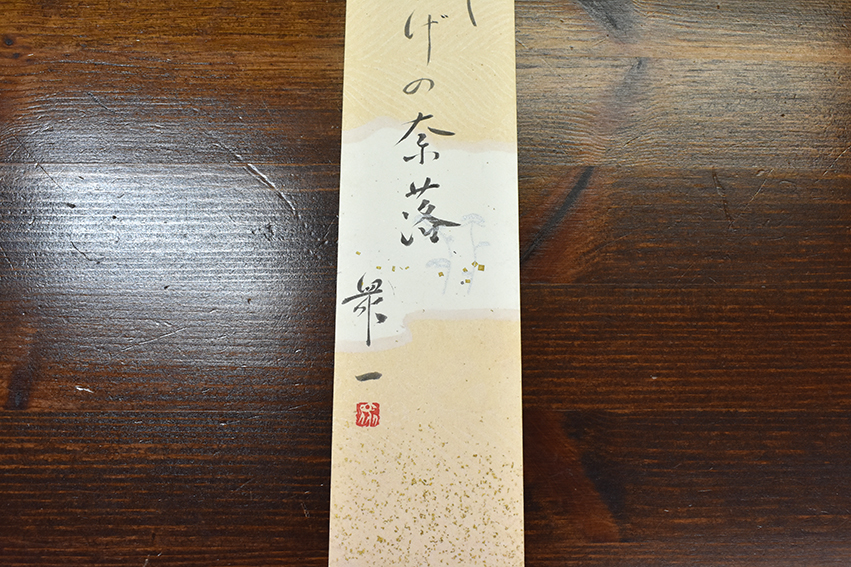 げの奈落
衆一